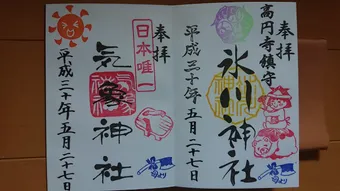 高円寺鎮守
奉拝
氷川神社
平成三十年五月二十七日
奉拝
日本唯一
気象神社
平成三十年五月二十七日